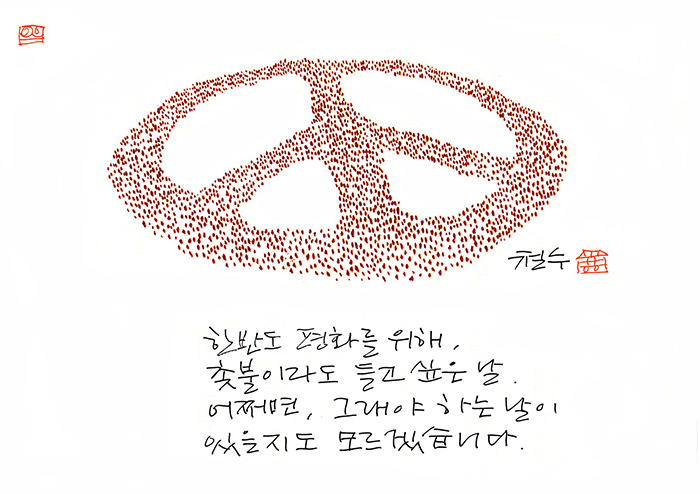 철수
한반도 평화를 위해,
촛불이라도 들고 싶은 날.
어쩌면, 그래야 하는 날이
있을지도 모르겠습니다.